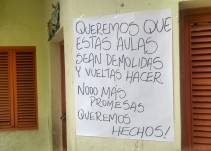 QUEREMOS QUE
ESTAS AULAS
SEAN DEMOLIDAS
Y VUELTAS HACER
NO MÁS
PROMESAS
QUEREMOS
HECHOS!